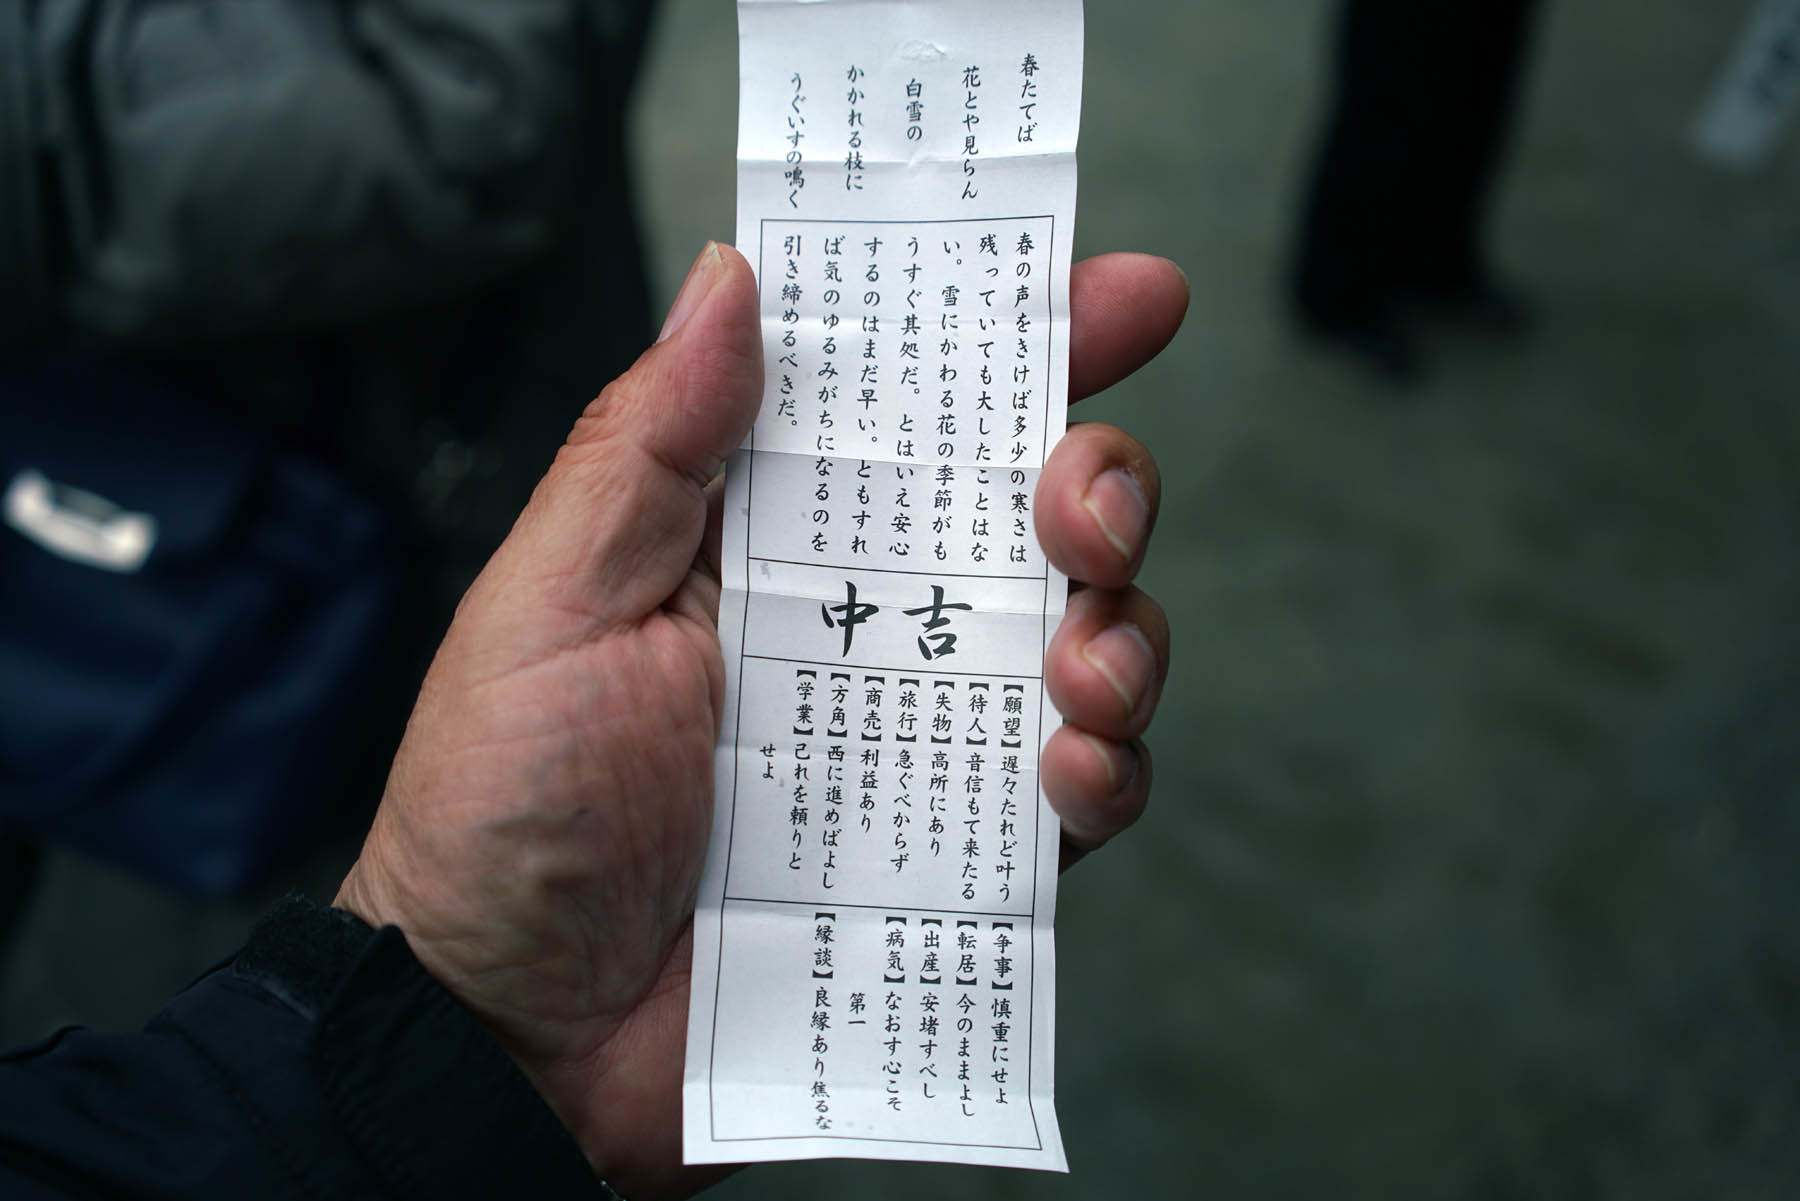 春たてば
花とや見らん
白雪の
かかれる枝に
うぐいすの鳴く
春の声をきけば多少の寒さは
残っていても大したことはな
い。雪にかわる花の季節がも
うすぐ其処だ。とはいえ安心
するのはまだ早い。ともすれ
ば気のゆるみがちになるのを
引き締めるべきだ。
中吉
【願望】遅々たれど叶う
【待人】音信もて来たる
【失物】高所にあり
【旅行】急ぐべからず
【商売】利益あり
【方角】西に進めばよし
【学業】己れを頼りと
せよ
【争事】慎重にせよ
【転居】今のままよし
【出産】安堵すべし
【病気】なおす心こそ
第一
【縁談】良縁あり焦るな